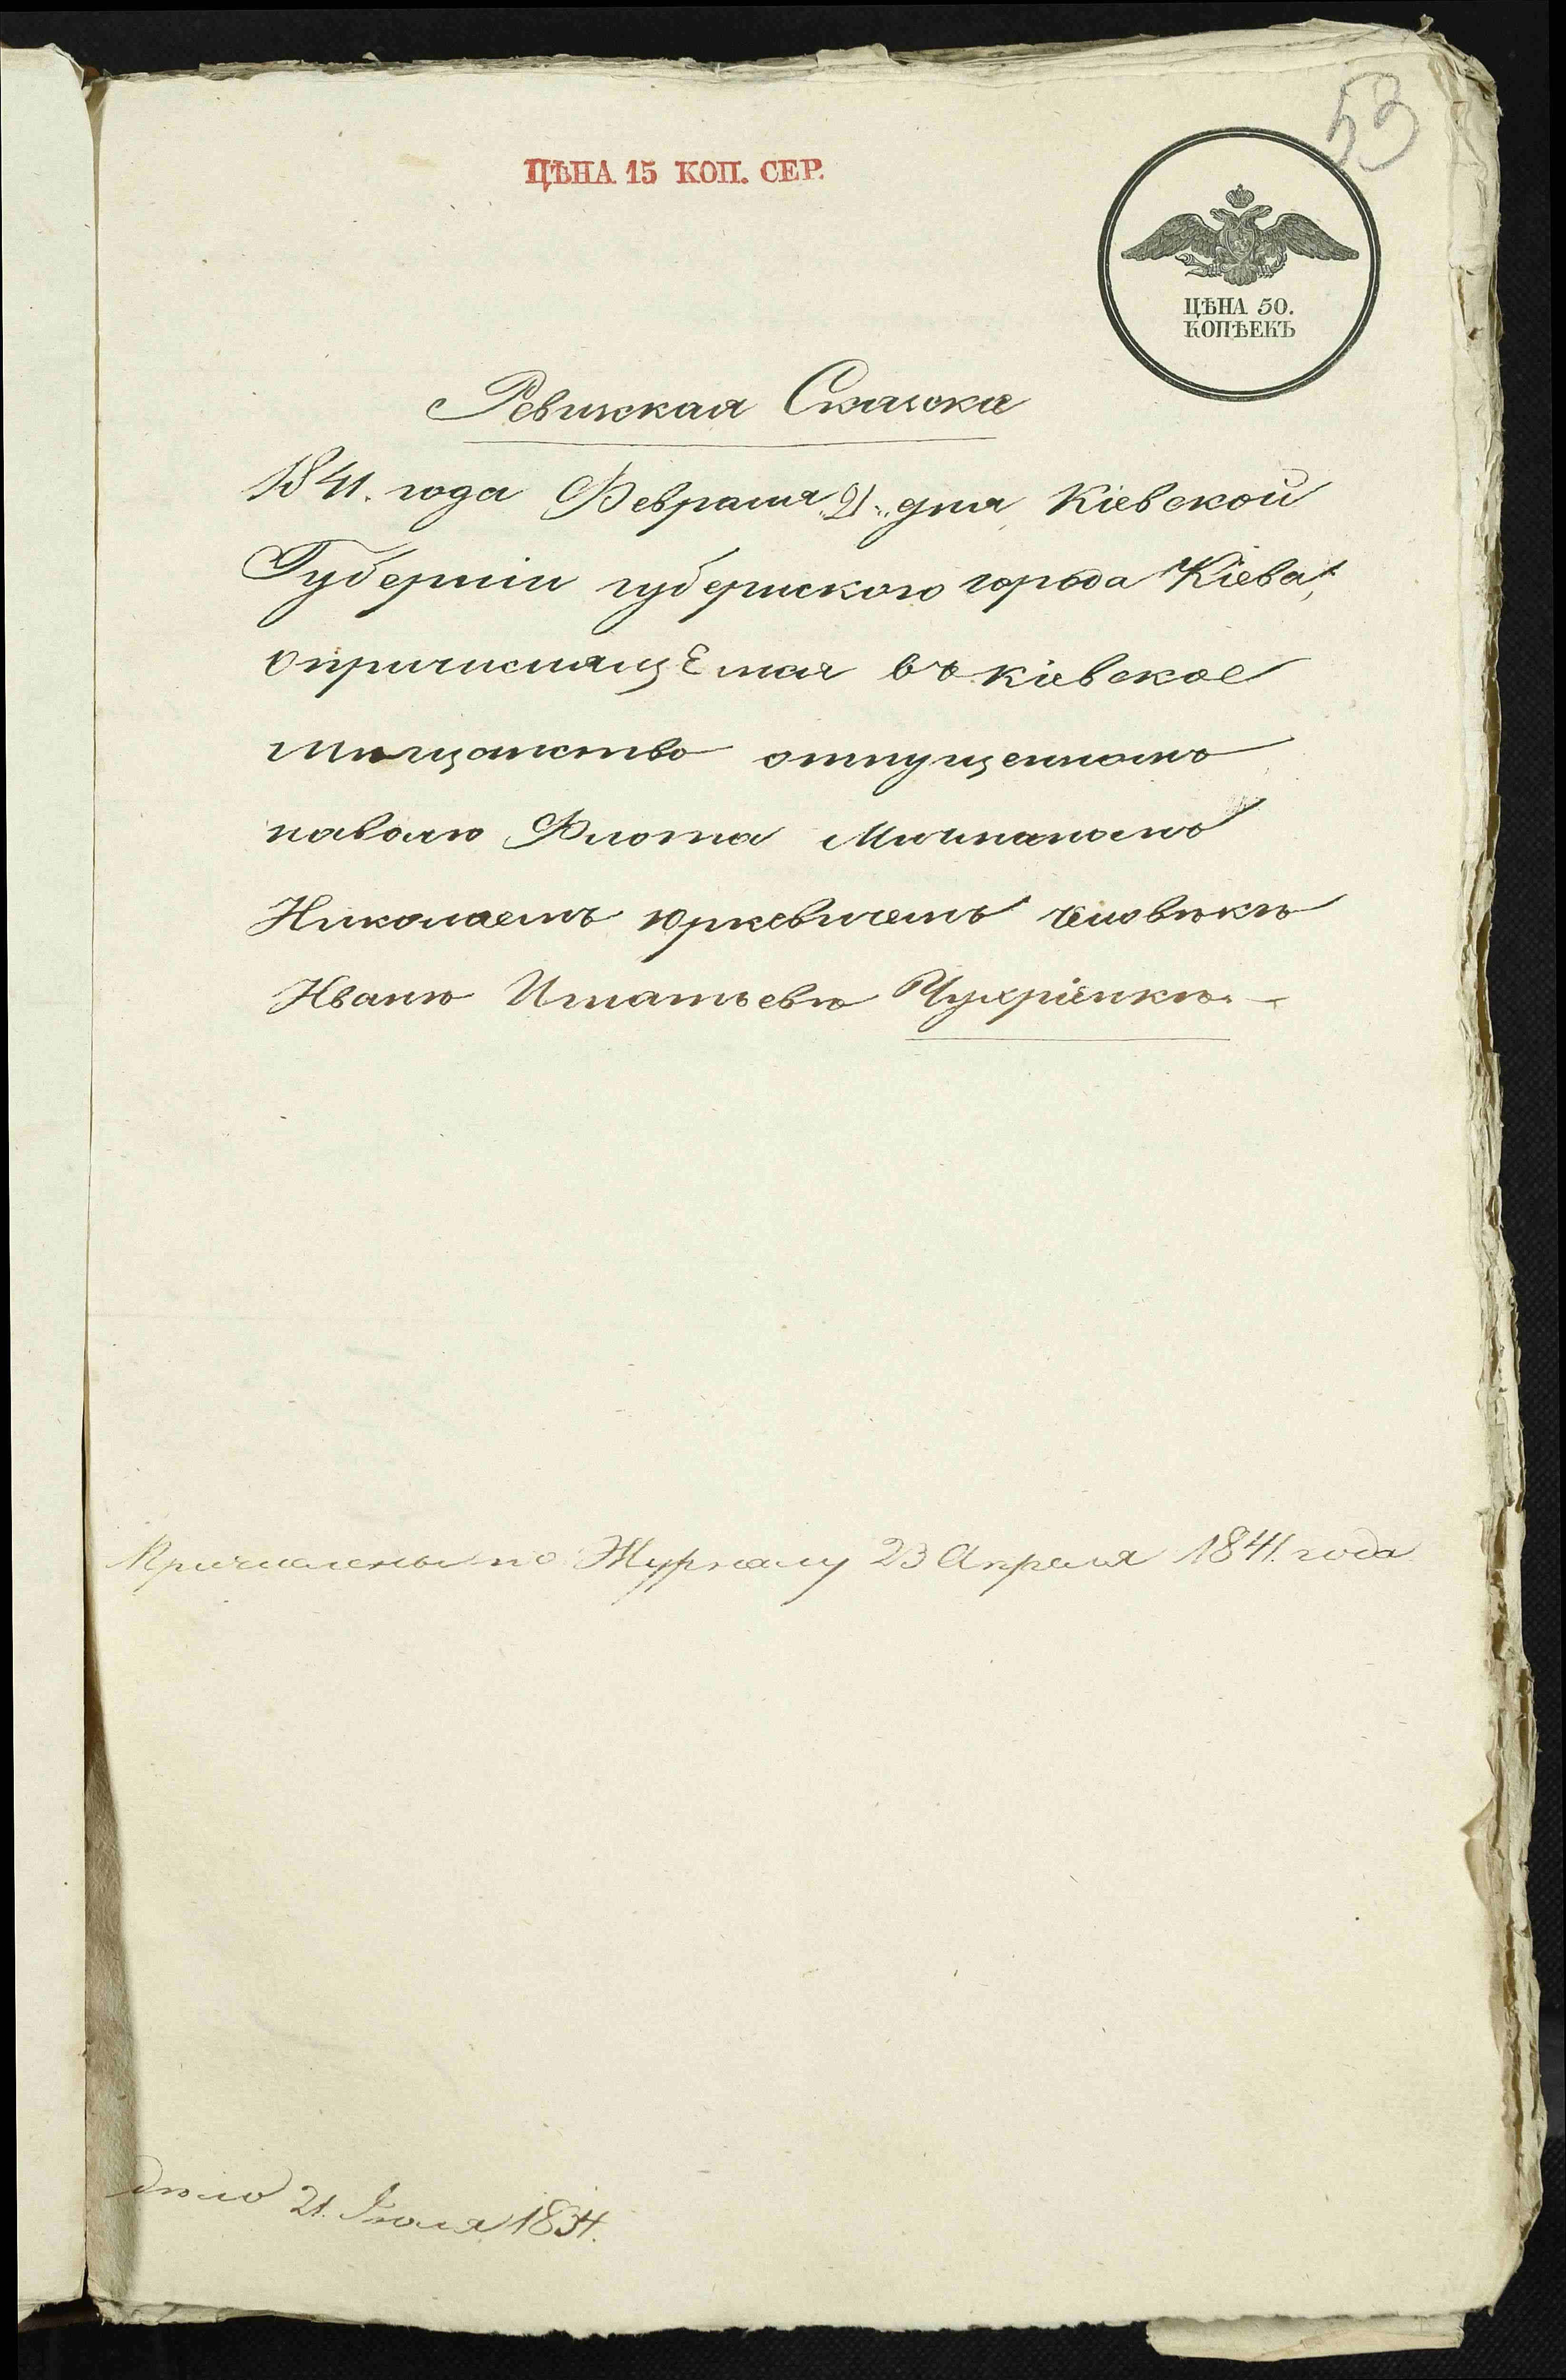 53
ЦѢНА 15 КОП. СЕР.
ЦѢНА 50.
КОПѢЕКЪ
Ревизкая Сказка
1841. года Февраля „21„ дня Кіевской
Губерніи губернского города Кіева,
о причисляющемся въ кіевское
мѣщанство отпущенномъ
наволю Флота Мичманомъ
Николаемъ Юркевичемъ человѣкѣ
Иванѣ Игнатьевѣ Чухріенкѣ.
Причислены по Журналу 23 Апреля 1841. года
дѣло 21. Іюля 1834.